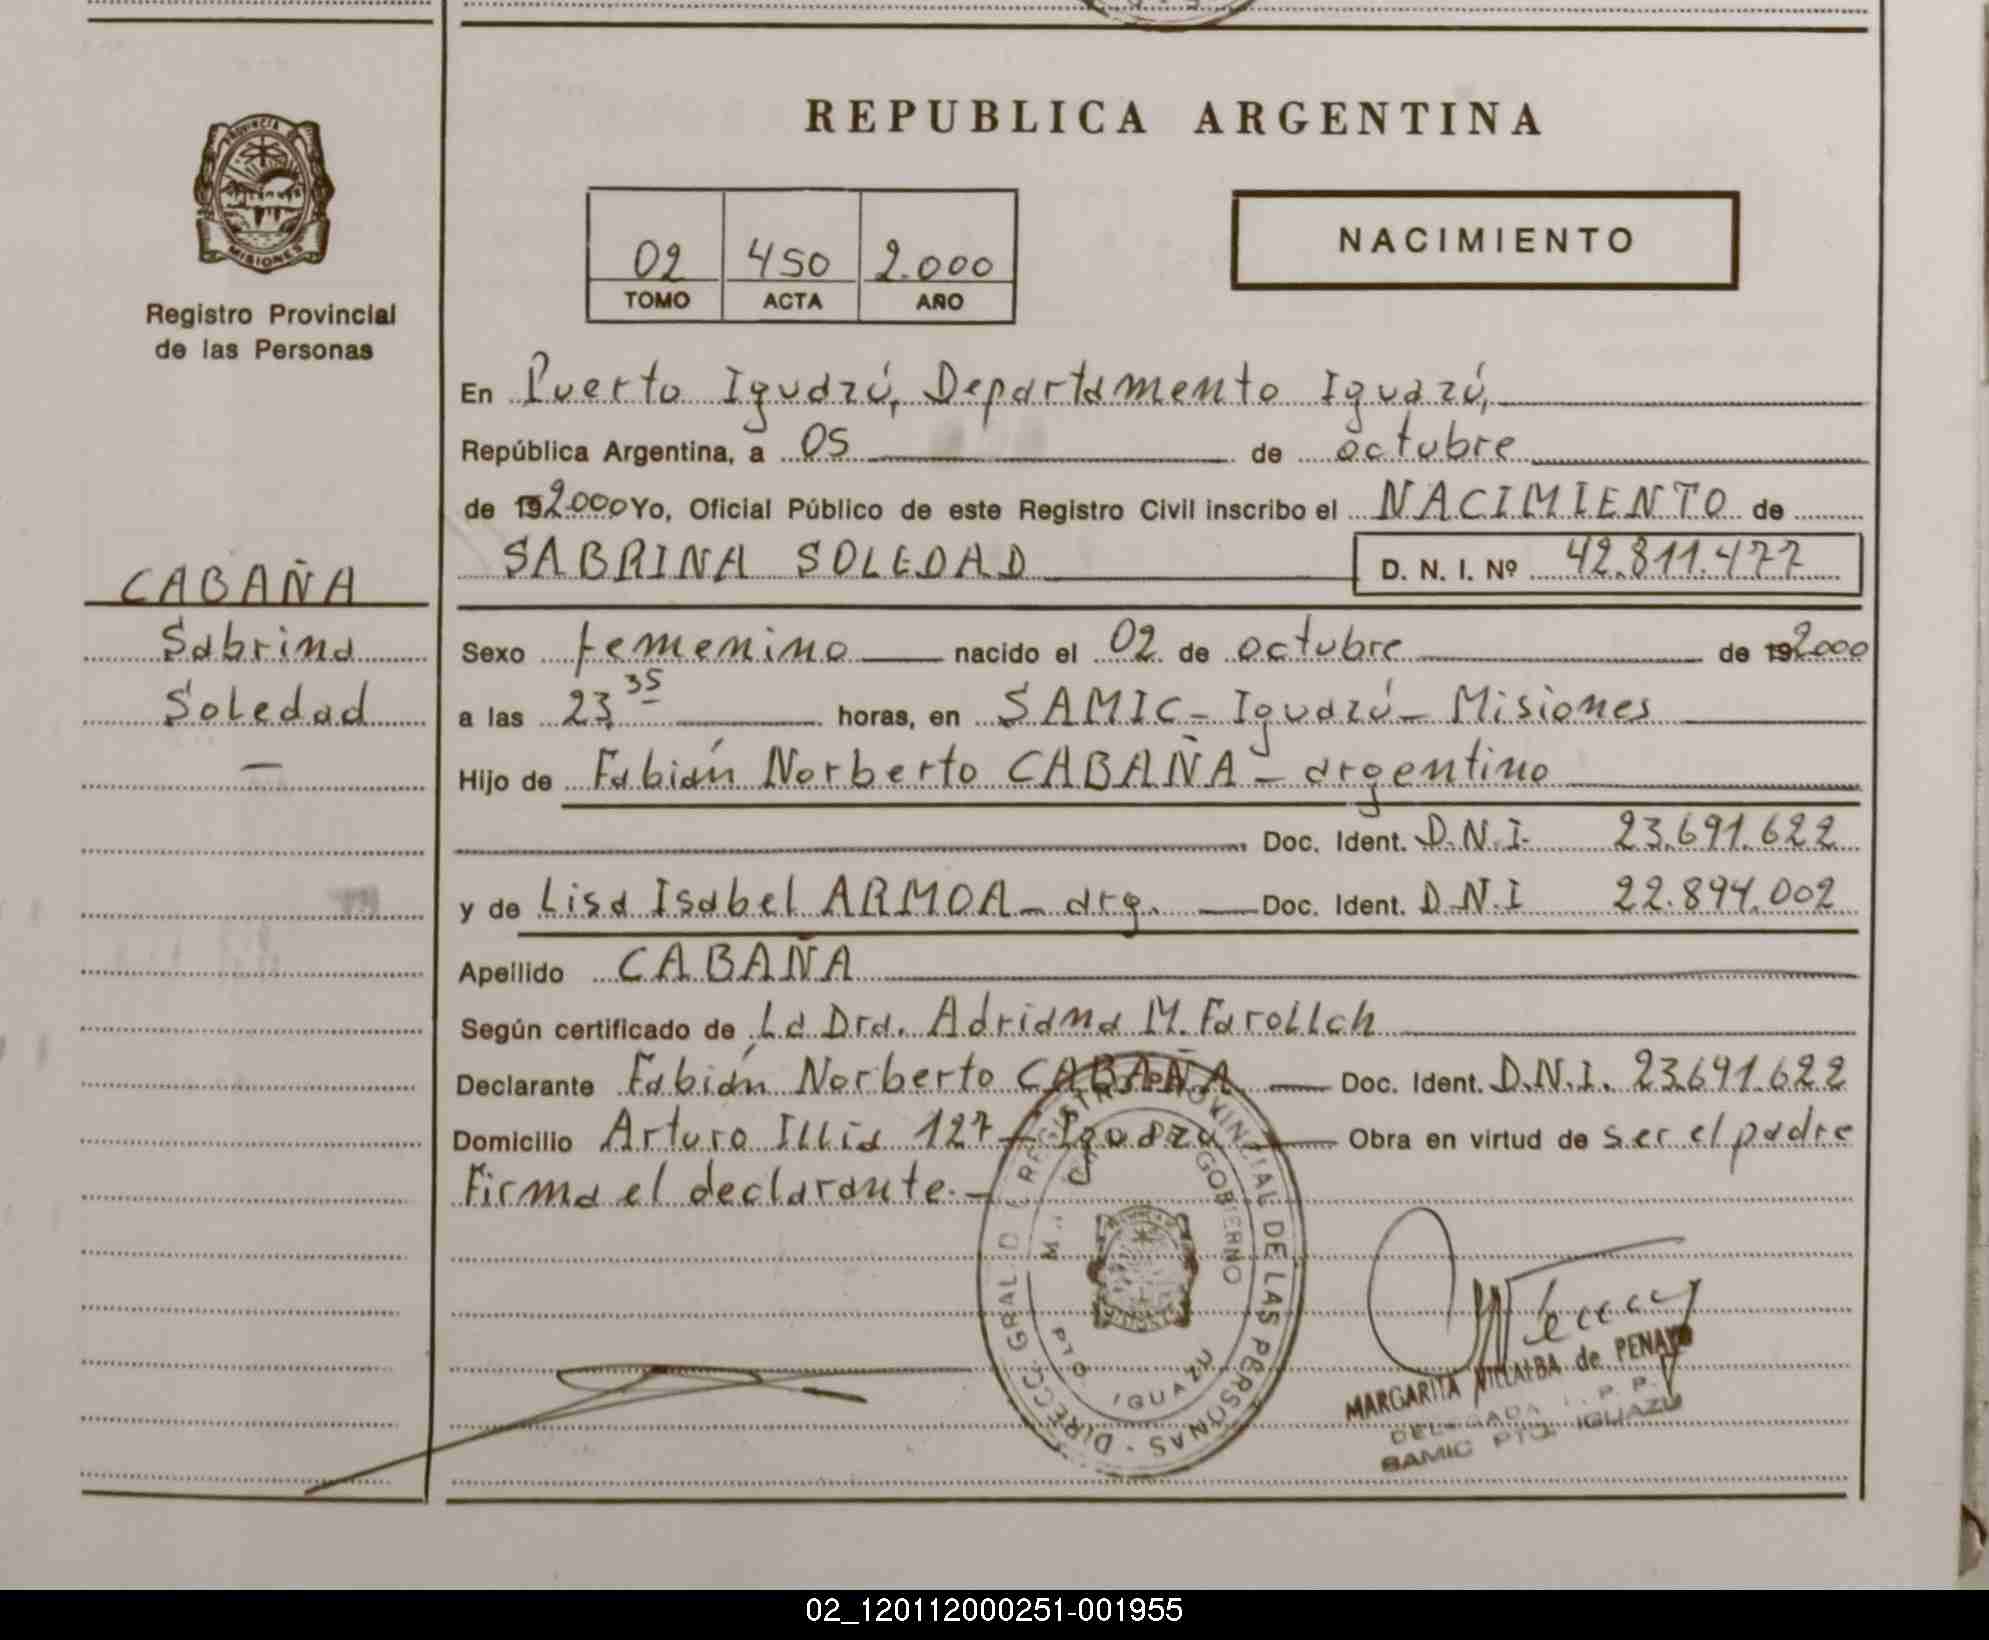 REPUBLICA ARGENTINA
PROVINCIA DE
MISIONES
Registro Provincial
de las Personas
02 450 2.000
TOMO ACTA AÑO
NACIMIENTO
En Puerto Iguazú, Departamento Iguazú,
República Argentina, a 05 de octubre
de 192000 Yo, Oficial Público de este Registro Civil inscribo el NACIMIENTO de
SABRINA SOLEDAD D. N. I. Nº 42.811.477
CABAÑA
Sabrina
Soledad
Sexo femenino nacido el 02 de octubre de 192000
a las 23 35 horas, en SAMIC - Iguazú - Misiones
Hijo de Fabián Norberto CABAÑA - argentino
Doc. Ident. D.N.I. 23.691.622
y de Lisa Isabel ARMOA - arg. Doc. Ident. D.N.I 22.894.002
Apellido CABAÑA
Según certificado de La Dra. Adriana M. Farollch
Declarante Fabián Norberto CABAÑA Doc. Ident. D.N.I. 23.691.622
Domicilio Arturo Illia 127 - Iguazú Obra en virtud de ser el padre
Firma el declarante. -
DIRECC. GRAL. D REGISTRO PROVINCIAL DE LAS PERSONAS
GOBIERNO
PTO. IGUAZU
MARGARITA VILLALBA de PENAYO
DELEGADA R. P. P.
SAMIC PTO. IGUAZU
02_120112000251-001955